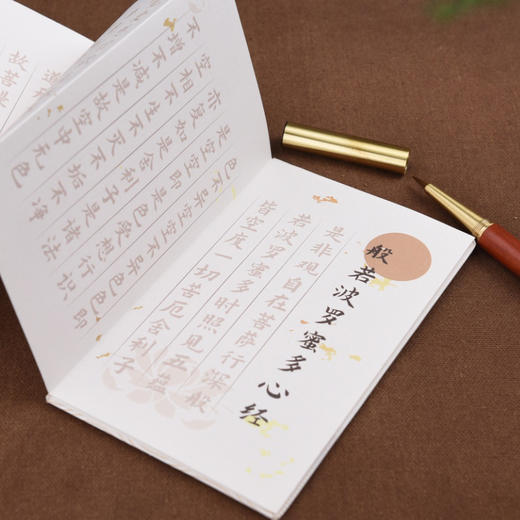 般若波罗蜜多心经
是非观自在菩萨行深般
若波罗蜜多时照见五蕴
皆空度一切苦厄舍利子
色不异空空不异色色即
是空空即是色受想行识
亦复如是舍利子是诸法
空相不生不灭不垢不净
不增不减是故空中无色